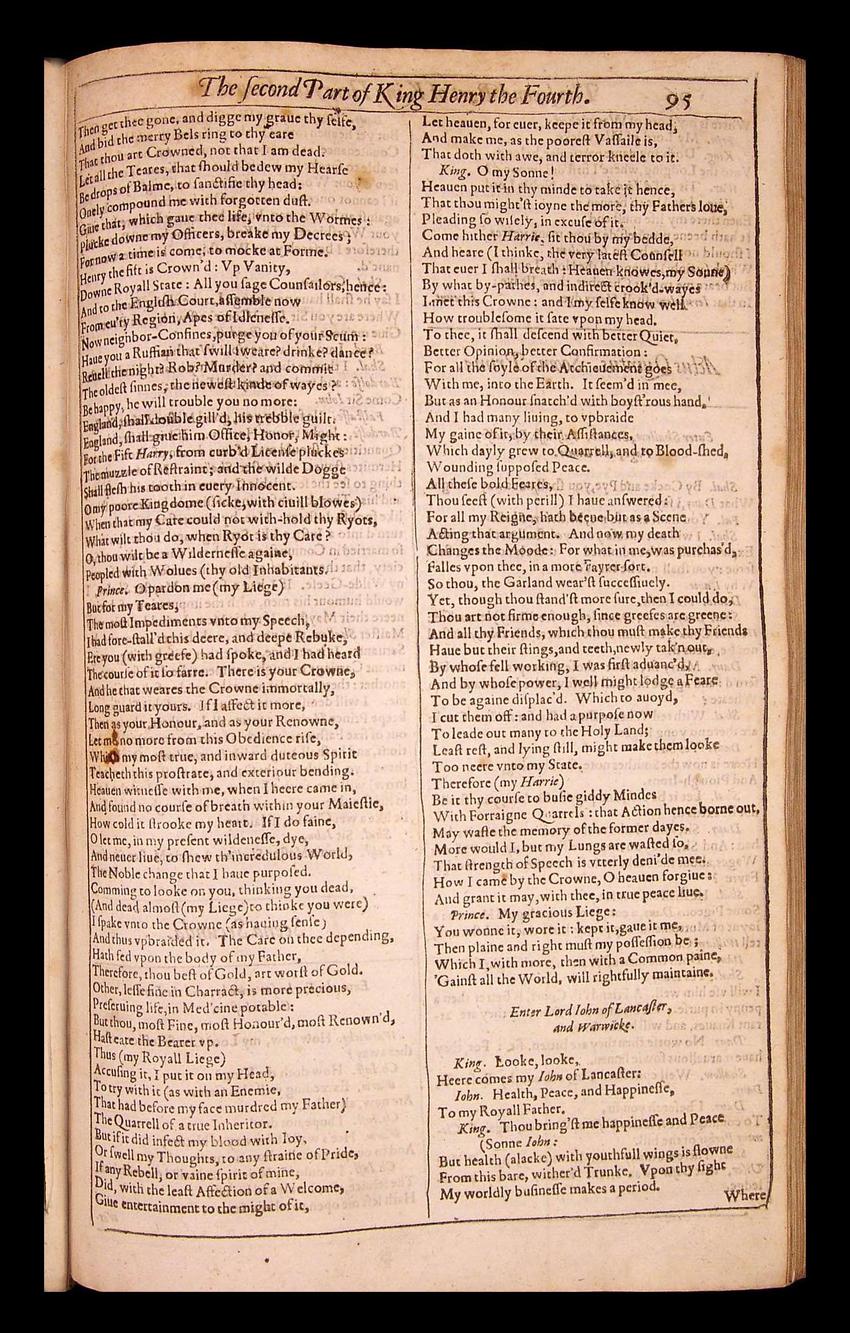 The ſecond Part of King Henry the Fourth. 95
Then get thee gone, and digge my graue thy ſelfe,
And bid the merry Bels ring to thy eare
That thou art Crowned, not that I am dead.
Let all the Teares, that ſhould bedew my Hearſe
Be drops of Balme, to ſanctifie thy head:
Onely compound me with forgotten duſt.
Giue that, which gaue thee life, vnto the Wormes:
Plucke downe my Officers, breake my Decrees;
For now a time is come, to mocke at Forme.
Henry the fift is Crown'd: Vp Vanity,
Downe Royall State: All you ſage Counſailors, hence:
And to the Engliſh Court, aſſemble now
From eu'ry Region, Apes of Idleneſſe.
Now neighbor-Confines, purge you of your Scum:
Haue you a Ruffian that ſwill ſweare? drinke? dance?
Reuell the night? Rob? Murder? and commit
The oldeſt ſinnes, the neweſt kinde of wayes?
Be happy, he will trouble you no more:
England, ſhall double gill'd, his trebble guilt.
England, ſhall giue him Office, Honor, Might:
For the Fift Harry, from curb'd Licenſe pluckes
The muzzle of Reſtraint; and the wilde Dogge
Shall fleſh his tooth in euery Innocent.
O my poore Kingdome (ſicke, with ciuill blowes)
When that my Care could not with-hold thy Ryots,
What wilt thou do, when Ryot is thy Care?
O, thou wilt be a Wilderneſſe againe,
Peopled with Wolues (thy old Inhabitants.
Prince. O pardon me (my Liege)
But for my Teares,
The moſt Impediments vnto my Speech,
I had fore-ſtall'd this deere, and deepe Rebuke,
Ere you (with greefe) had ſpoke, and I had heard
The courſe of it ſo farre. There is your Crowne,
And he that weares the Crowne immortally,
Long guard it yours. If I affect it more,
Then as your Honour, and as your Renowne,
Let me no more from this Obedience riſe,
Which my moſt true, and inward duteous Spirit
Teacheth this proſtrate, and exteriour bending.
Heauen witneſſe with me, when I heere came in,
And found no courſe of breath within your Maieſtie,
How cold it ſtrooke my heart. If I do faine,
O let me, in my preſent wildeneſſe, dye,
And neuer liue, to ſhew th'incredulous World,
The Noble change that I haue purpoſed.
Comming to looke on you, thinking you dead,
(And dead almoſt (my Liege) to thinke you were)
I ſpake vnto the Crowne (as hauing ſenſe)
And thus vpbraided it. The Care on thee depending,
Hath fed vpon the body of my Father,
Therefore, thou beſt of Gold, art worſt of Gold.
Other, leſſe fine in Charract, is more precious,
Preſeruing life, in Med'cine potable:
But thou, moſt Fine, moſt Honour'd, moſt Renown'd,
Haſt eate the Bearer vp.
Thus (my Royall Liege)
Accuſing it, I put it on my Head,
To try with it (as with an Enemie,
That had before my face murdred my Father)
The Quarrell of a true Inheritor.
But if it did infect my blood with Ioy,
Or ſwell my Thoughts, to any ſtraine of Pride,
If any Rebell, or vaine ſpirit of mine,
Did, with the leaſt Affection of a Welcome,
Giue entertainment to the might of it,
Let heauen, for euer, keepe it from my head,
And make me, as the pooreſt Vaſſaile is,
That doth with awe, and terror kneele to it.
King. O my Sonne!
Heauen put it in thy minde to take it hence,
That thou might'ſt ioyne the more, thy Fathers loue,
Pleading ſo wiſely, in excuſe of it.
Come hither Harrie, ſit thou by my bedde,
And heare (I thinke, the very lateſt Counſell
That euer I ſhall breath: Heauen knowes, my Sonne)
By what by-pathes, and indirect crook'd-wayes
I met this Crowne: and I my ſelfe know well
How troubleſome it ſate vpon my head.
To thee, it ſhall deſcend with better Quiet,
Better Opinion, better Confirmation:
For all the ſoyle of the Atchieuement goes
With me, into the Earth. It ſeem'd in mee,
But as an Honour ſnatch'd with boyſt'rous hand,
And I had many liuing, to vpbraide
My gaine of it, by their Aſſiſtances,
Which dayly grew to Quarrell, and to Blood-ſhed,
Wounding ſuppoſed Peace.
All theſe bold Feares,
Thou ſeeſt (with perill) I haue anſwered:
For all my Reigne, hath beene but as a Scene
Acting that argument. And now my death
Changes the Moode: For what in me, was purchas'd,
Falles vpon thee, in a more Fayrer ſort.
So thou, the Garland wear'ſt ſucceſſiuely.
Yet, though thou ſtand'ſt more ſure, then I could do,
Thou art not firme enough, ſince greefes are greene:
And all thy Friends, which thou muſt make thy Friends
Haue but their ſtings, and teeth, newly tak'n out,
By whoſe fell working, I was firſt aduanc'd,
And by whoſe power, I well might lodge a Feare
To be againe diſplac'd. Which to auoyd,
I cut them off: and had a purpoſe now
To leade out many to the Holy Land;
Leaſt reſt, and lying ſtill, might make them looke
Too neere vnto my State.
Therefore (my Harrie)
Be it thy courſe to buſie giddy Mindes
With Forraigne Quarrels: that Action hence borne out,
May waſte the memory of the former dayes.
More would I, but my Lungs are waſted ſo,
That ſtrength of Speech is vtterly deni'de mee.
How I came by the Crowne, O heauen forgiue:
And grant it may, with thee, in true peace liue.
Prince. My gracious Liege:
You wonne it, wore it: kept it, gaue it me,
Then plaine and right muſt my poſſeſſion be;
Which I, with more, then with a Common paine,
'Gainſt all the World, will rightfully maintaine.
Enter Lord Iohn of Lancaſter,
and Warwicke.
King. Looke, looke,
Heere comes my Iohn of Lancaſter:
Iohn. Health, Peace, and Happineſſe,
To my Royall Father.
King. Thou bring'ſt me happineſſe and Peace
(Sonne Iohn:
But health (alacke) with youthfull wings is flowne
From this bare, wither'd Trunke. Vpon thy ſight
My worldly buſineſſe makes a period.
Where